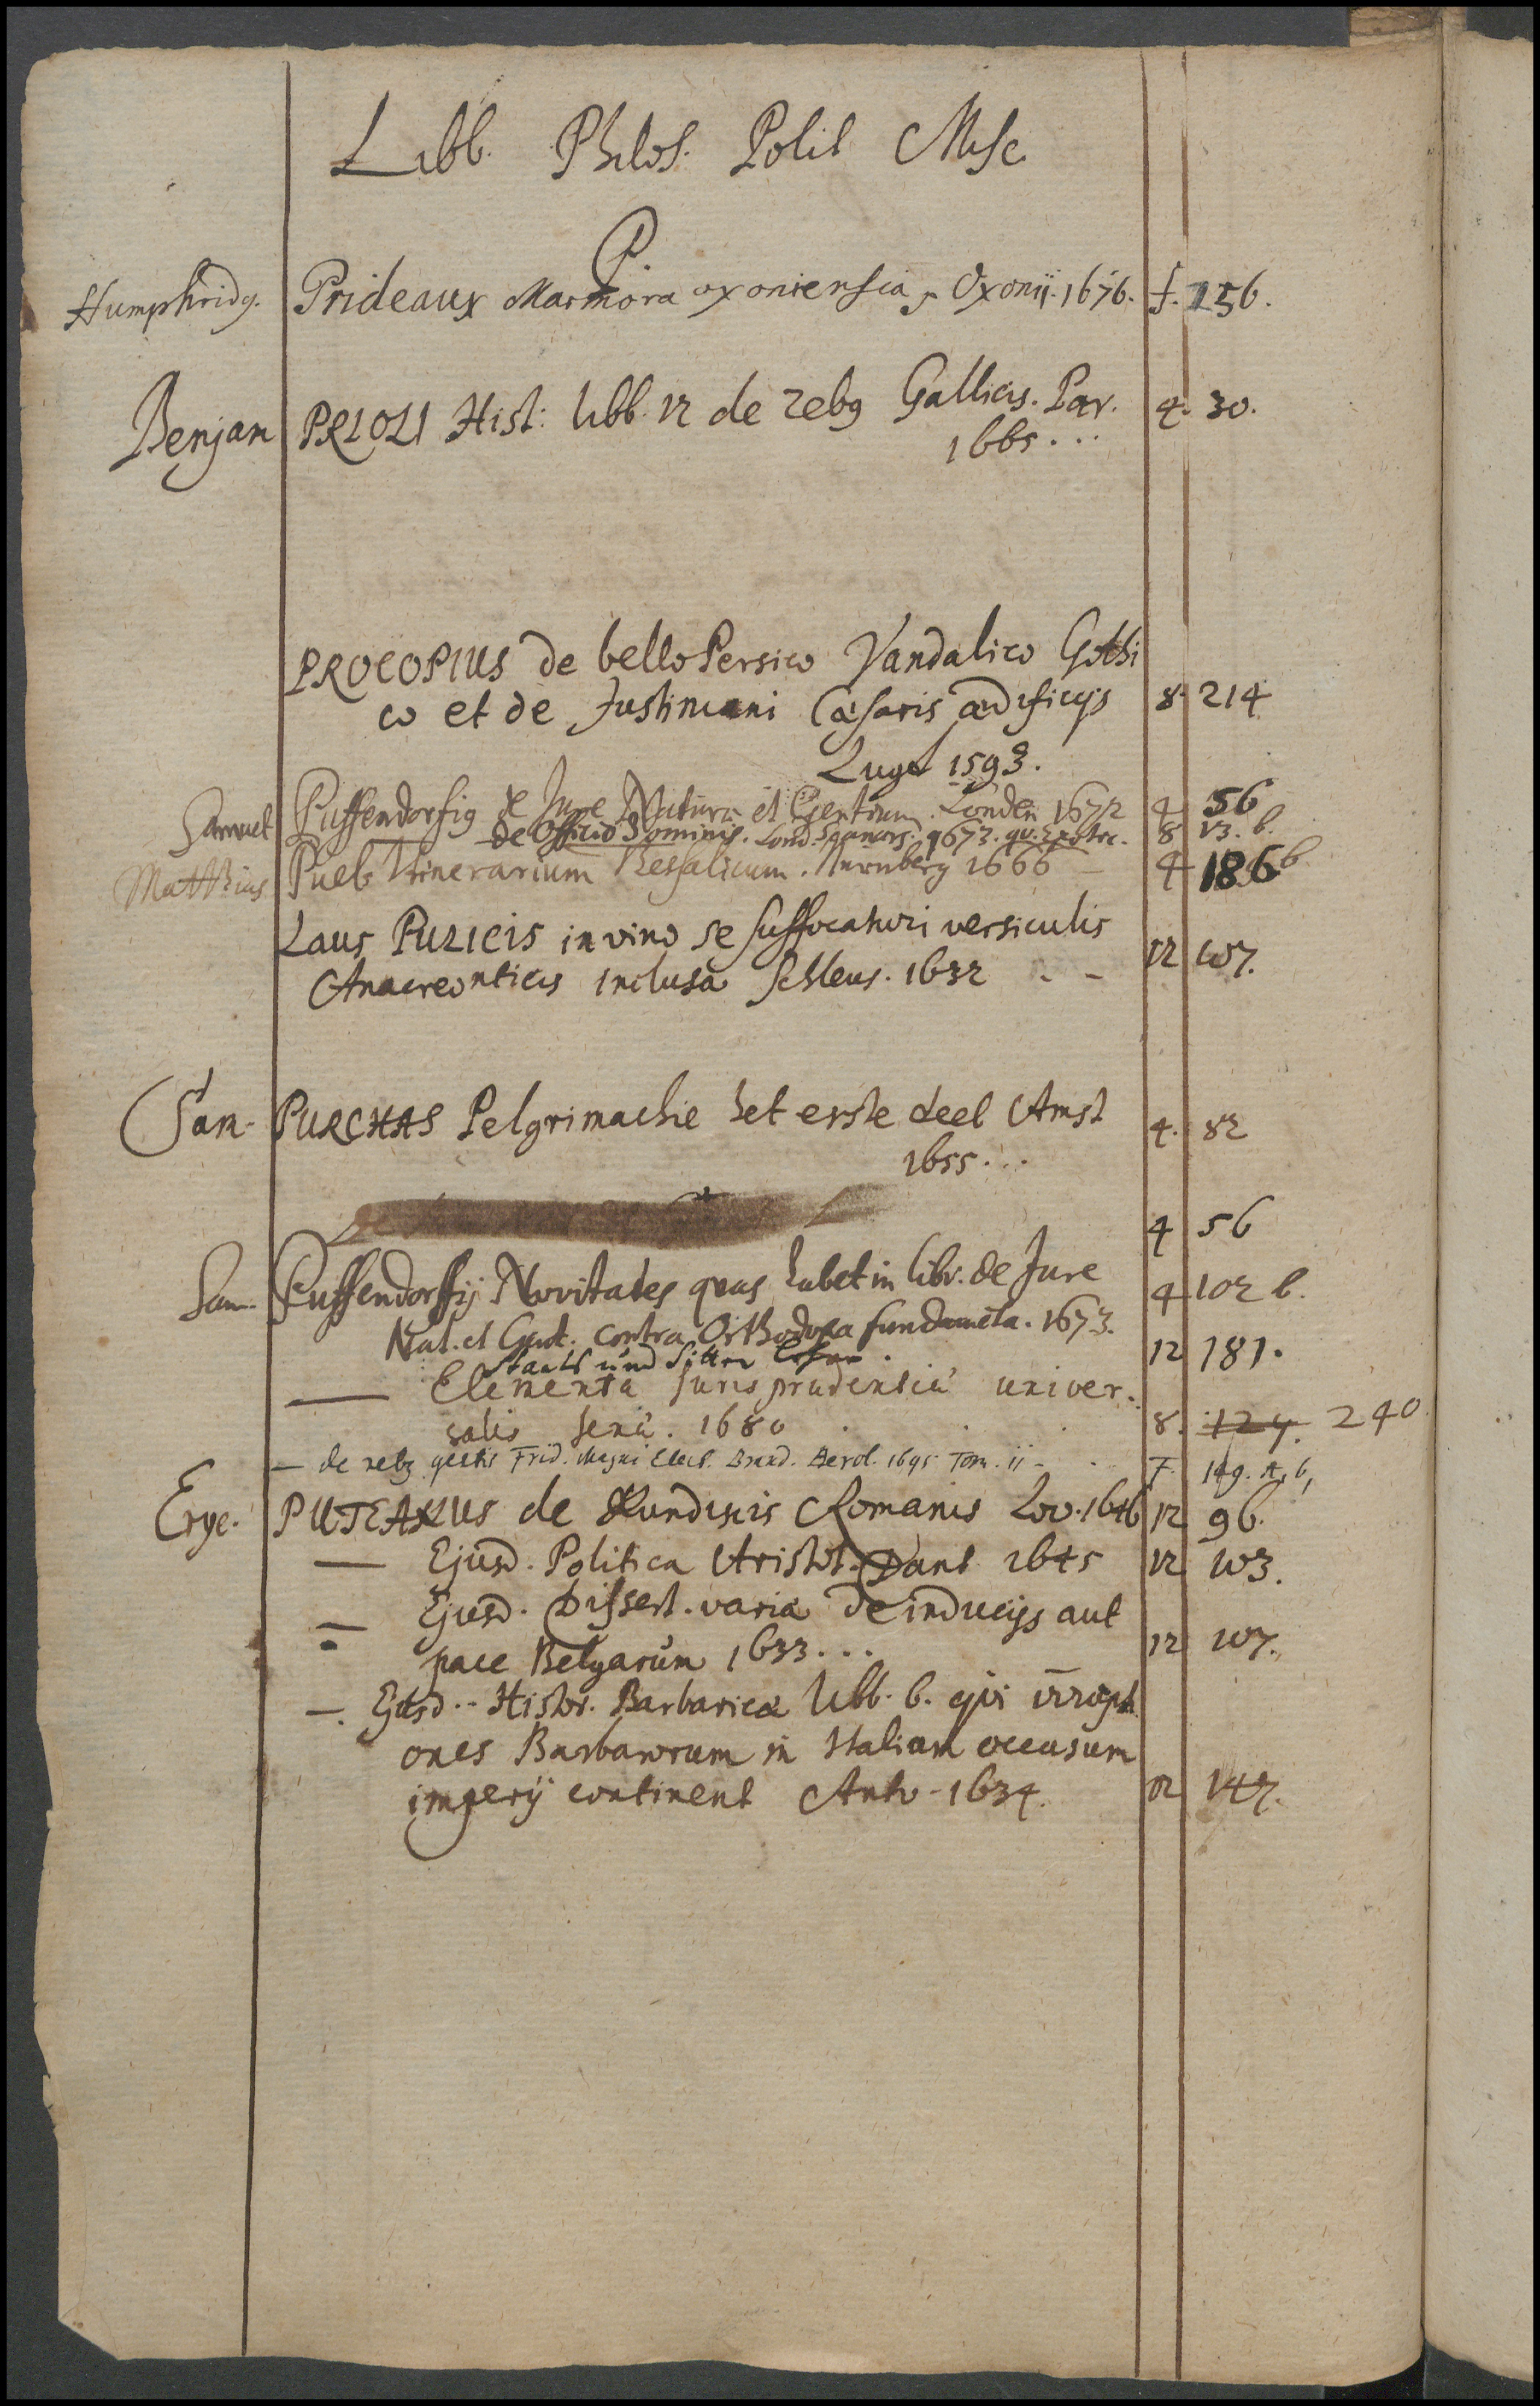 Libb. Philos. Polit Misc
P.
Humphridg. Prideaux Marmora oxoniensia, Oxonii. 1676. f. 156.
Benjam PRIOLI Hist: libb. 12 de rebg Gallicis. Par. 4. 30.
1665...
PROCOPIUS de bello Persico Vandalico Gothi
co et de Justiniani Cæsaris ædificijs 8. 214
Lugd 1593.
Samuel Puffendorfig de Jure Naturæ et Gentium. Londen 1672 4 56
de Officio Hominis. Lond. Scanors. 1673. 8 13. b.
Matthias Puel Itinerarium Thessalicum. Nurnberg 1666 – 4 186 b
Laus PULICIS in vino se suffocaturi versiculis
Anacreonticis inclusa Schleus. 1632 - - 12 107.
Sam. PURCHAS Pelgrimachie het erste deel Amst 4. 82
1655...
4 56
Sam. Puffendorffij Novitates quas habet in libr. de Jure 4 102 b.
Nat. et Gent. contra Orthodoxa fundamēta. 1673.
Staats und Sitten 12 181.
— Elementa Jurisprudentiæ univer-
salis Jenæ. 1680 8. 124. 240
— de rebg gestis Frid. Magni Elect. Brand. Berol. 1695 Tom. ii - F. 149. A, b,
Erye. PUTEANUS de Nundinis Romanis Lov. 1646 12 96.
— Ejusd. Politica Aristot. 1645 12 103.
— Ejusd. Dissert. varia de inducijs aut
pace Belgarum 1633... 12 107.
—. Ejusd.. Histor. Barbaricæ libb. 6. qui irrupti
ones Barbarorum in Italiam occasum
imperij continent Antv. 1634. 12 147.